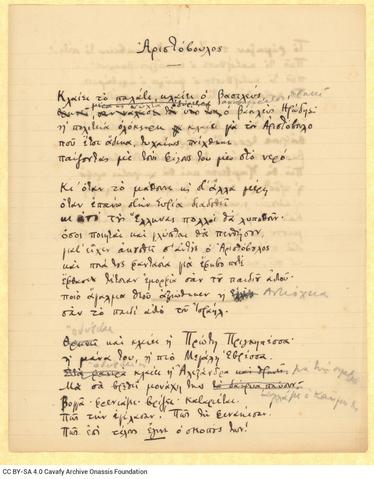 Ἀριστόβουλος
Κλαίει τὸ παλάτι, κλαίει ὁ βασιλεύς,
ὁ βασιλεὺς Ἡρώδης·
ἡ πολιτεία ὁλόκληρη κλαίει γιὰ τὸν Ἀριστόβουλο
ποὺ ἔτσι ἄδικα, τυχαίως πνίχθηκε
παίζοντας μὲ τοὺς φίλους του μὲς στὸ νερό.
Κι' ὅταν τὸ μάθουνε κι στ' ἄλλα μέρη
ὅταν ἐπάνω στὴν Συρία διαδοθεῖ
κι ἀπὸ τοὺς Ἕλληνας πολλοὶ θὰ λυπηθοῦν·
ὅσοι ποιηταὶ καὶ γλύπται θὰ πενθήσουν,
γιατ' εἶχεν ἀκουσθεῖ σ' αὐτοὺς ὁ Ἀριστόβουλος
καὶ ποιά τους φαντασία γιὰ ἔφηβο ποτὲ
ἔφθασε τέτοιαν ἐμορφιὰ σὰν τοῦ παιδιοῦ αὐτοῦ·
ποιὸ ἄγαλμα θεοῦ ἀξιώθηκεν ἡ Ἀντιόχεια
σὰν τὸ παιδὶ αὐτὸ τοῦ Ἰσραήλ.
ὀδύρεται
Θρηνεῖ καὶ κλαίει ἡ Πρώτη Πριγκηπέσσα·
ἡ μάνα του, ἡ πιὸ μεγάλη Ἑβρέσσα.
ὀδύρεται
κλαίει ἡ Ἀλεξάνδρα
Μὰ σὰν βρεθεῖ μονάχη της
Βογγᾶ· φρενιάζει· βρίζει· καταριέται.
Πῶς τὴν ἐγέλασαν! Πῶς τὴ φενάκισαν!
Πῶς ἐπὶ τέλους ἔγινε ὁ σκοπός των!
CC BY-SA 4.0 Cavafy Archive Onassis Foundation